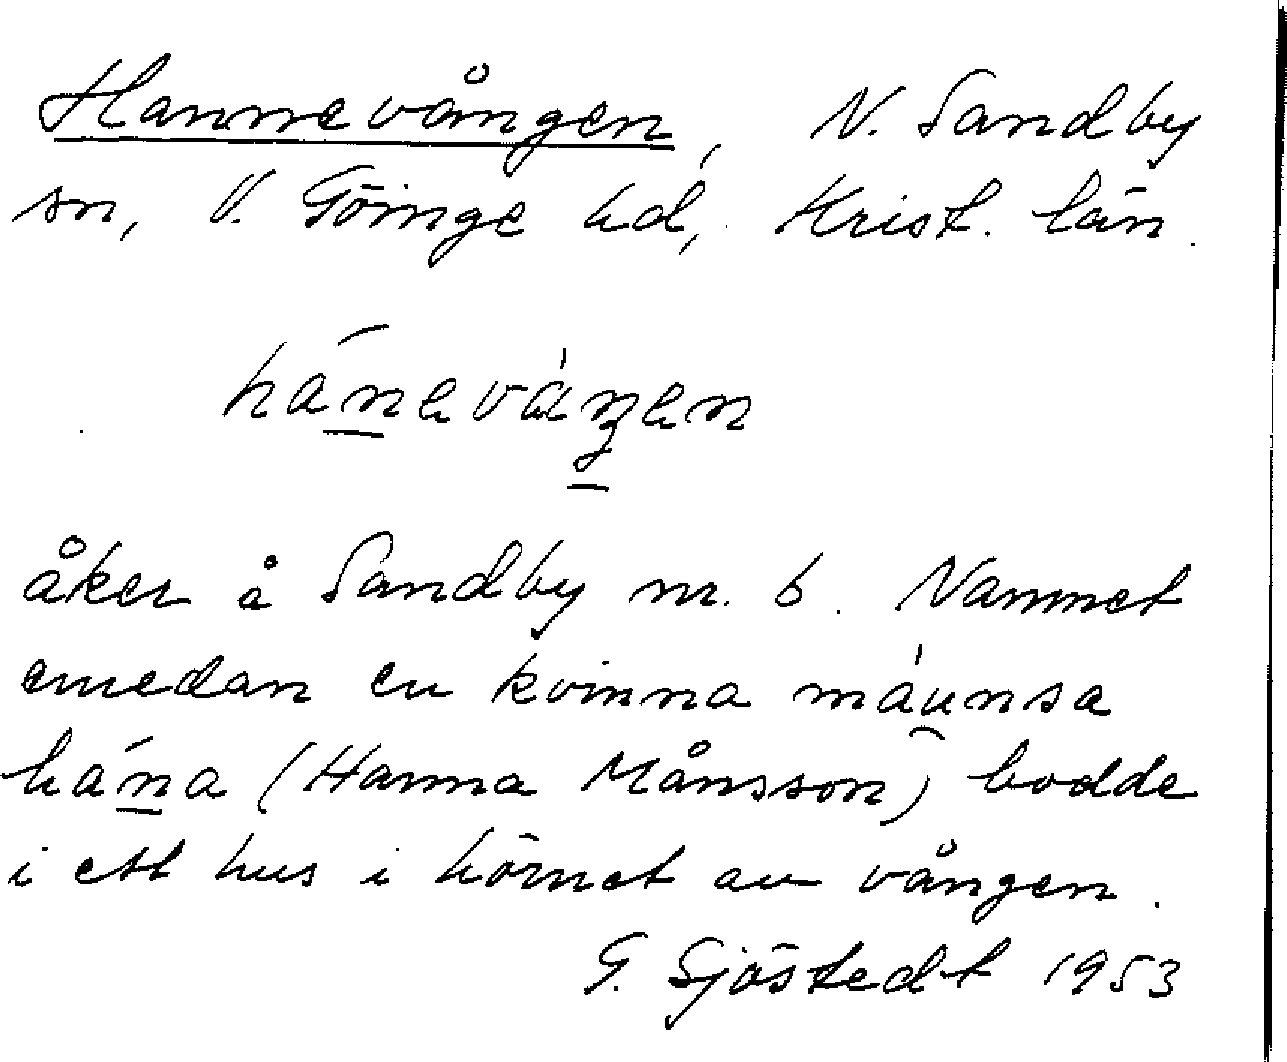 Hannevången, N. Sandby
sn, V. Göinge hd, Krist. län.
háneváŋen
åker å Sandby nr. 6. Namnet
emedan en kvinna máunsa
hána (Hanna Månsson) bodde
i ett hus i hörnet av vången.
G. Sjöstedt 1953